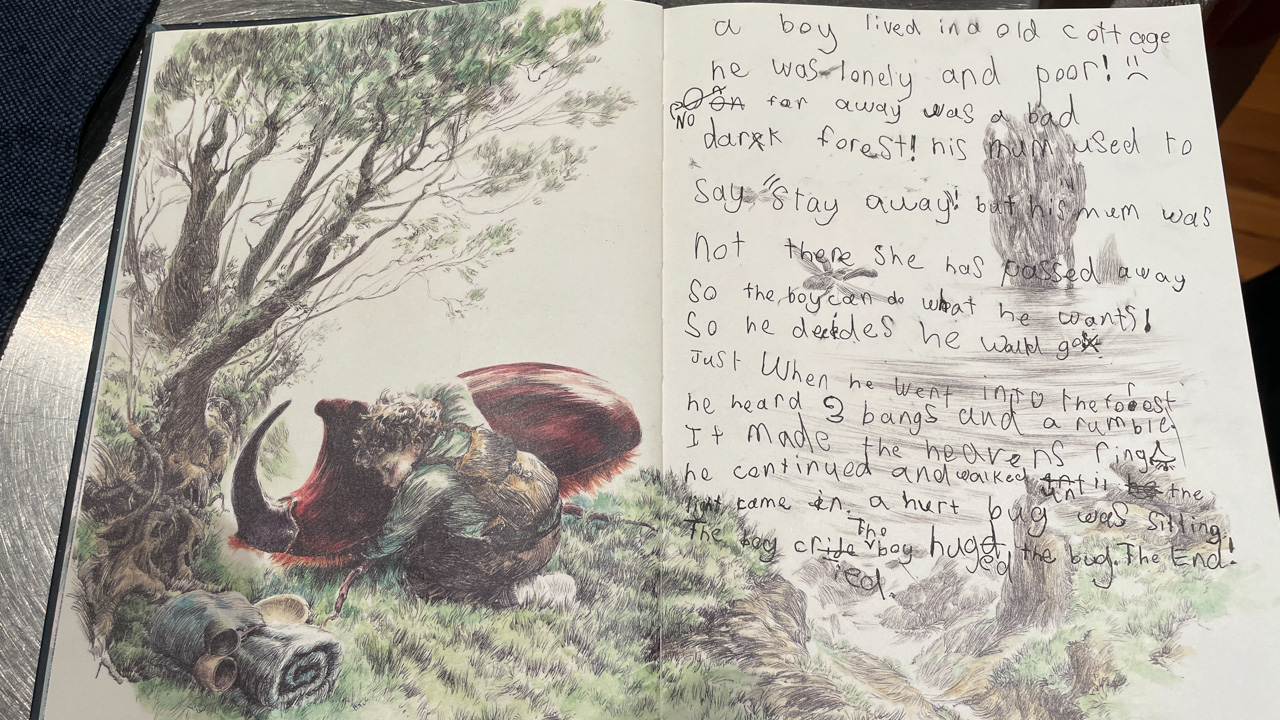 a boy lived in a old cottage
he was lonely and poor!
NO far away was a bad
dark forest! his mum used to
say "stay away! but his mum was
not there she has passed away
So the boy can do what he wants!
So he decides he would go
Just When he went into the forest
he heard 3 bangs and a rumble
It made the heavens ring
he continued and walked until the
light came in. a hurt bug was sitting.
The boy cried. The boy huged the bug. The End!